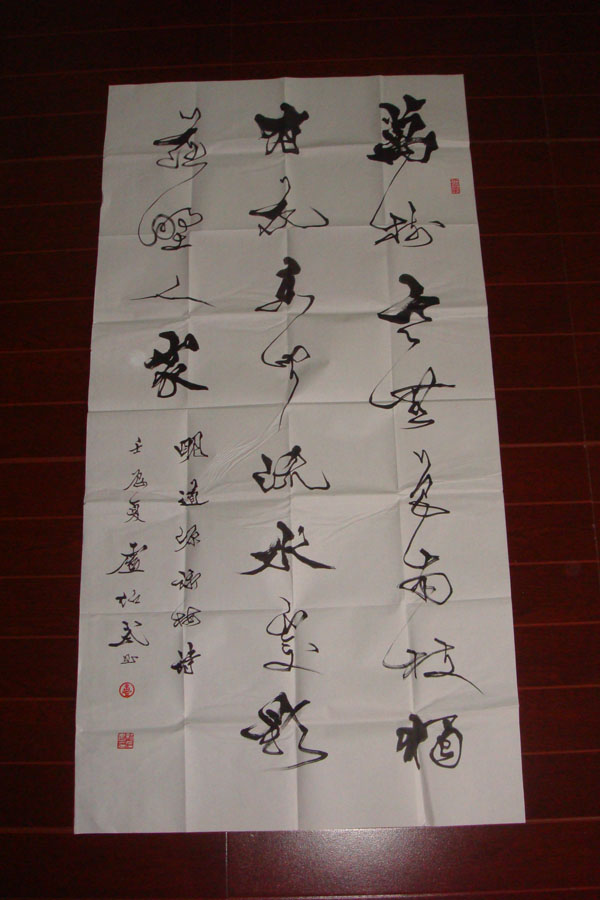 萬樹寒無色南枝獨
有花香聞流水處影
落野人家
明道源詠梅詩
壬辰夏盧